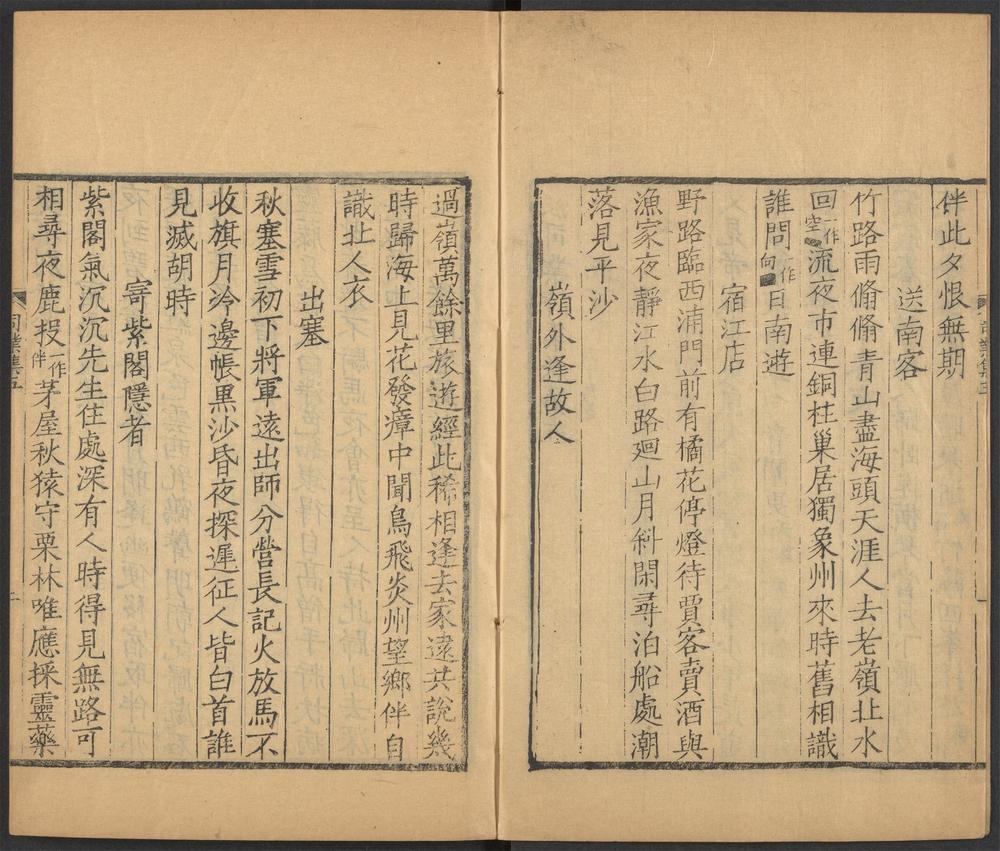 伴此夕恨無期
送南客
竹路雨脩脩青山盡海頭天涯人去老嶺北水
回一作空流夜市連銅柱巢居獨象州來時舊相識
誰問一作向日南遊
宿江店
野路臨西浦門前有橘花停燈待賈客賣酒與
漁家夜靜江水白路廻山月斜閑尋泊船處潮
落見平沙
嶺外逢故人
過嶺萬餘里旅遊經此稀相逢去家遠共說幾
時歸海上見花發瘴中聞鳥飛炎州望鄉伴自
識北人衣
出塞
秋塞雪初下將軍遠出師分營長記火放馬不
收旗月冷邊帳黒沙昏夜探遲征人皆白首誰
見滅胡時
寄紫閣隱者
紫閣氣沉沉先生住處深有人時得見無路可
相尋夜鹿投一作伴茅屋秋猿守栗林唯應採靈藥
司業集五